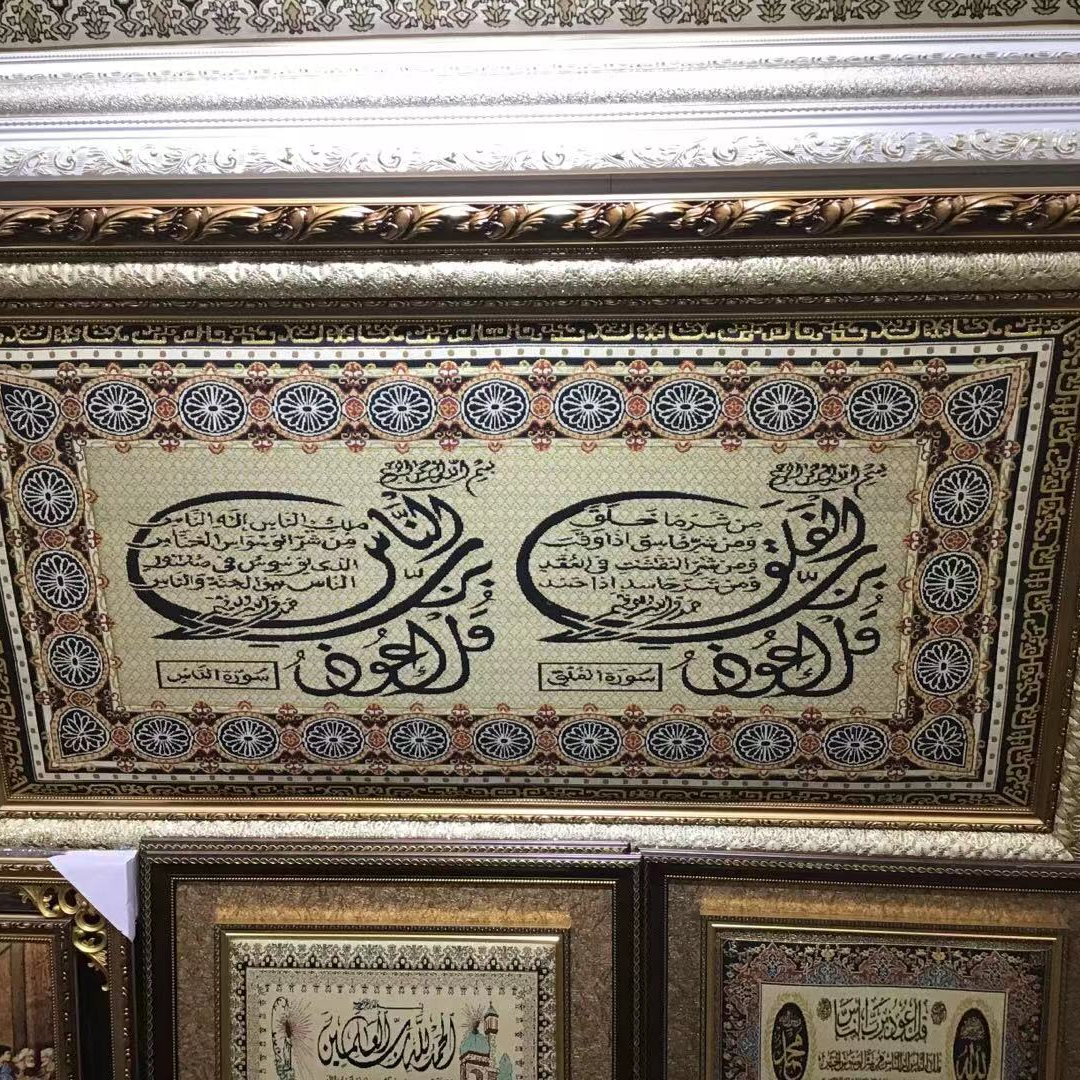 بسم الله الرحمن الرحيم
قل اعوذ برب الفلق
من شر ما خلق
ومن شر غاسق اذا وقب
ومن شر النفثت في العقد
ومن شر حاسد اذا حسد
صدق الله العظيم
سورة الفلق
بسم الله الرحمن الرحيم
قل اعوذ برب النَّاس
ملك الناس اله الناس
من شر الوسواس الخناس
الذي يوسوس في صدور
الناس من الجنة والناس
صدق الله العظيم
سورة الناس
الحمد لله رب العالمين
قل اعوذ برب الناس
محمد
الله